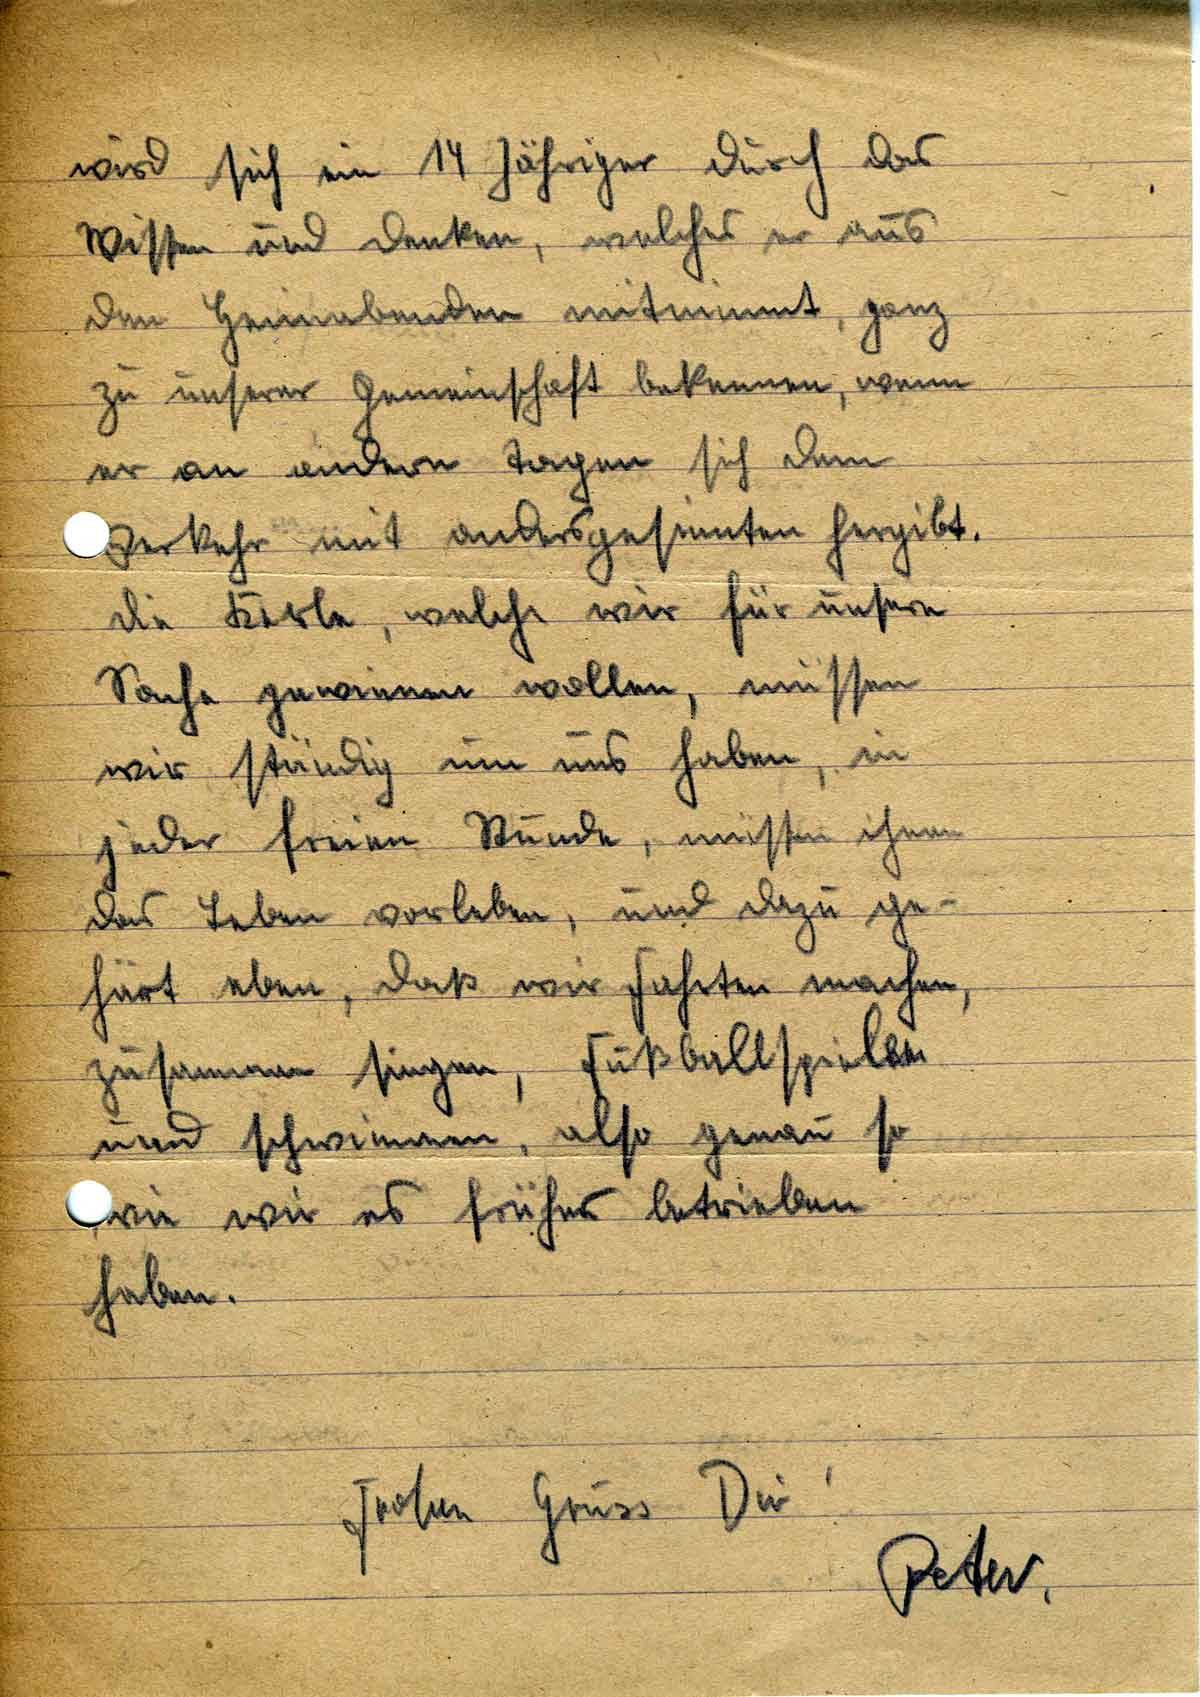 wird sich ein 14 Jähriger durch das
Wissen und denken, welches er aus
den Heimabenden mitnimmt, ganz
zu unserer Gemeinschaft bekennen, wenn
er an andern Tagen sich dem
Verkehr mit andersgesinnten hergibt.
die Kerle, welche wir für unsere
Sache gewinnen wollen, müssen
wir ständig um uns haben, in
jeder freien Stunde, müssen ihnen
das Leben vorleben, und dazu ge-
hört eben, daß wir Fahrten machen,
zusammen singen, Fußballspielen
und schwimmen, also genau so
wie wir es früher betrieben
haben.
Frohen Gruss Dir!
Peter.